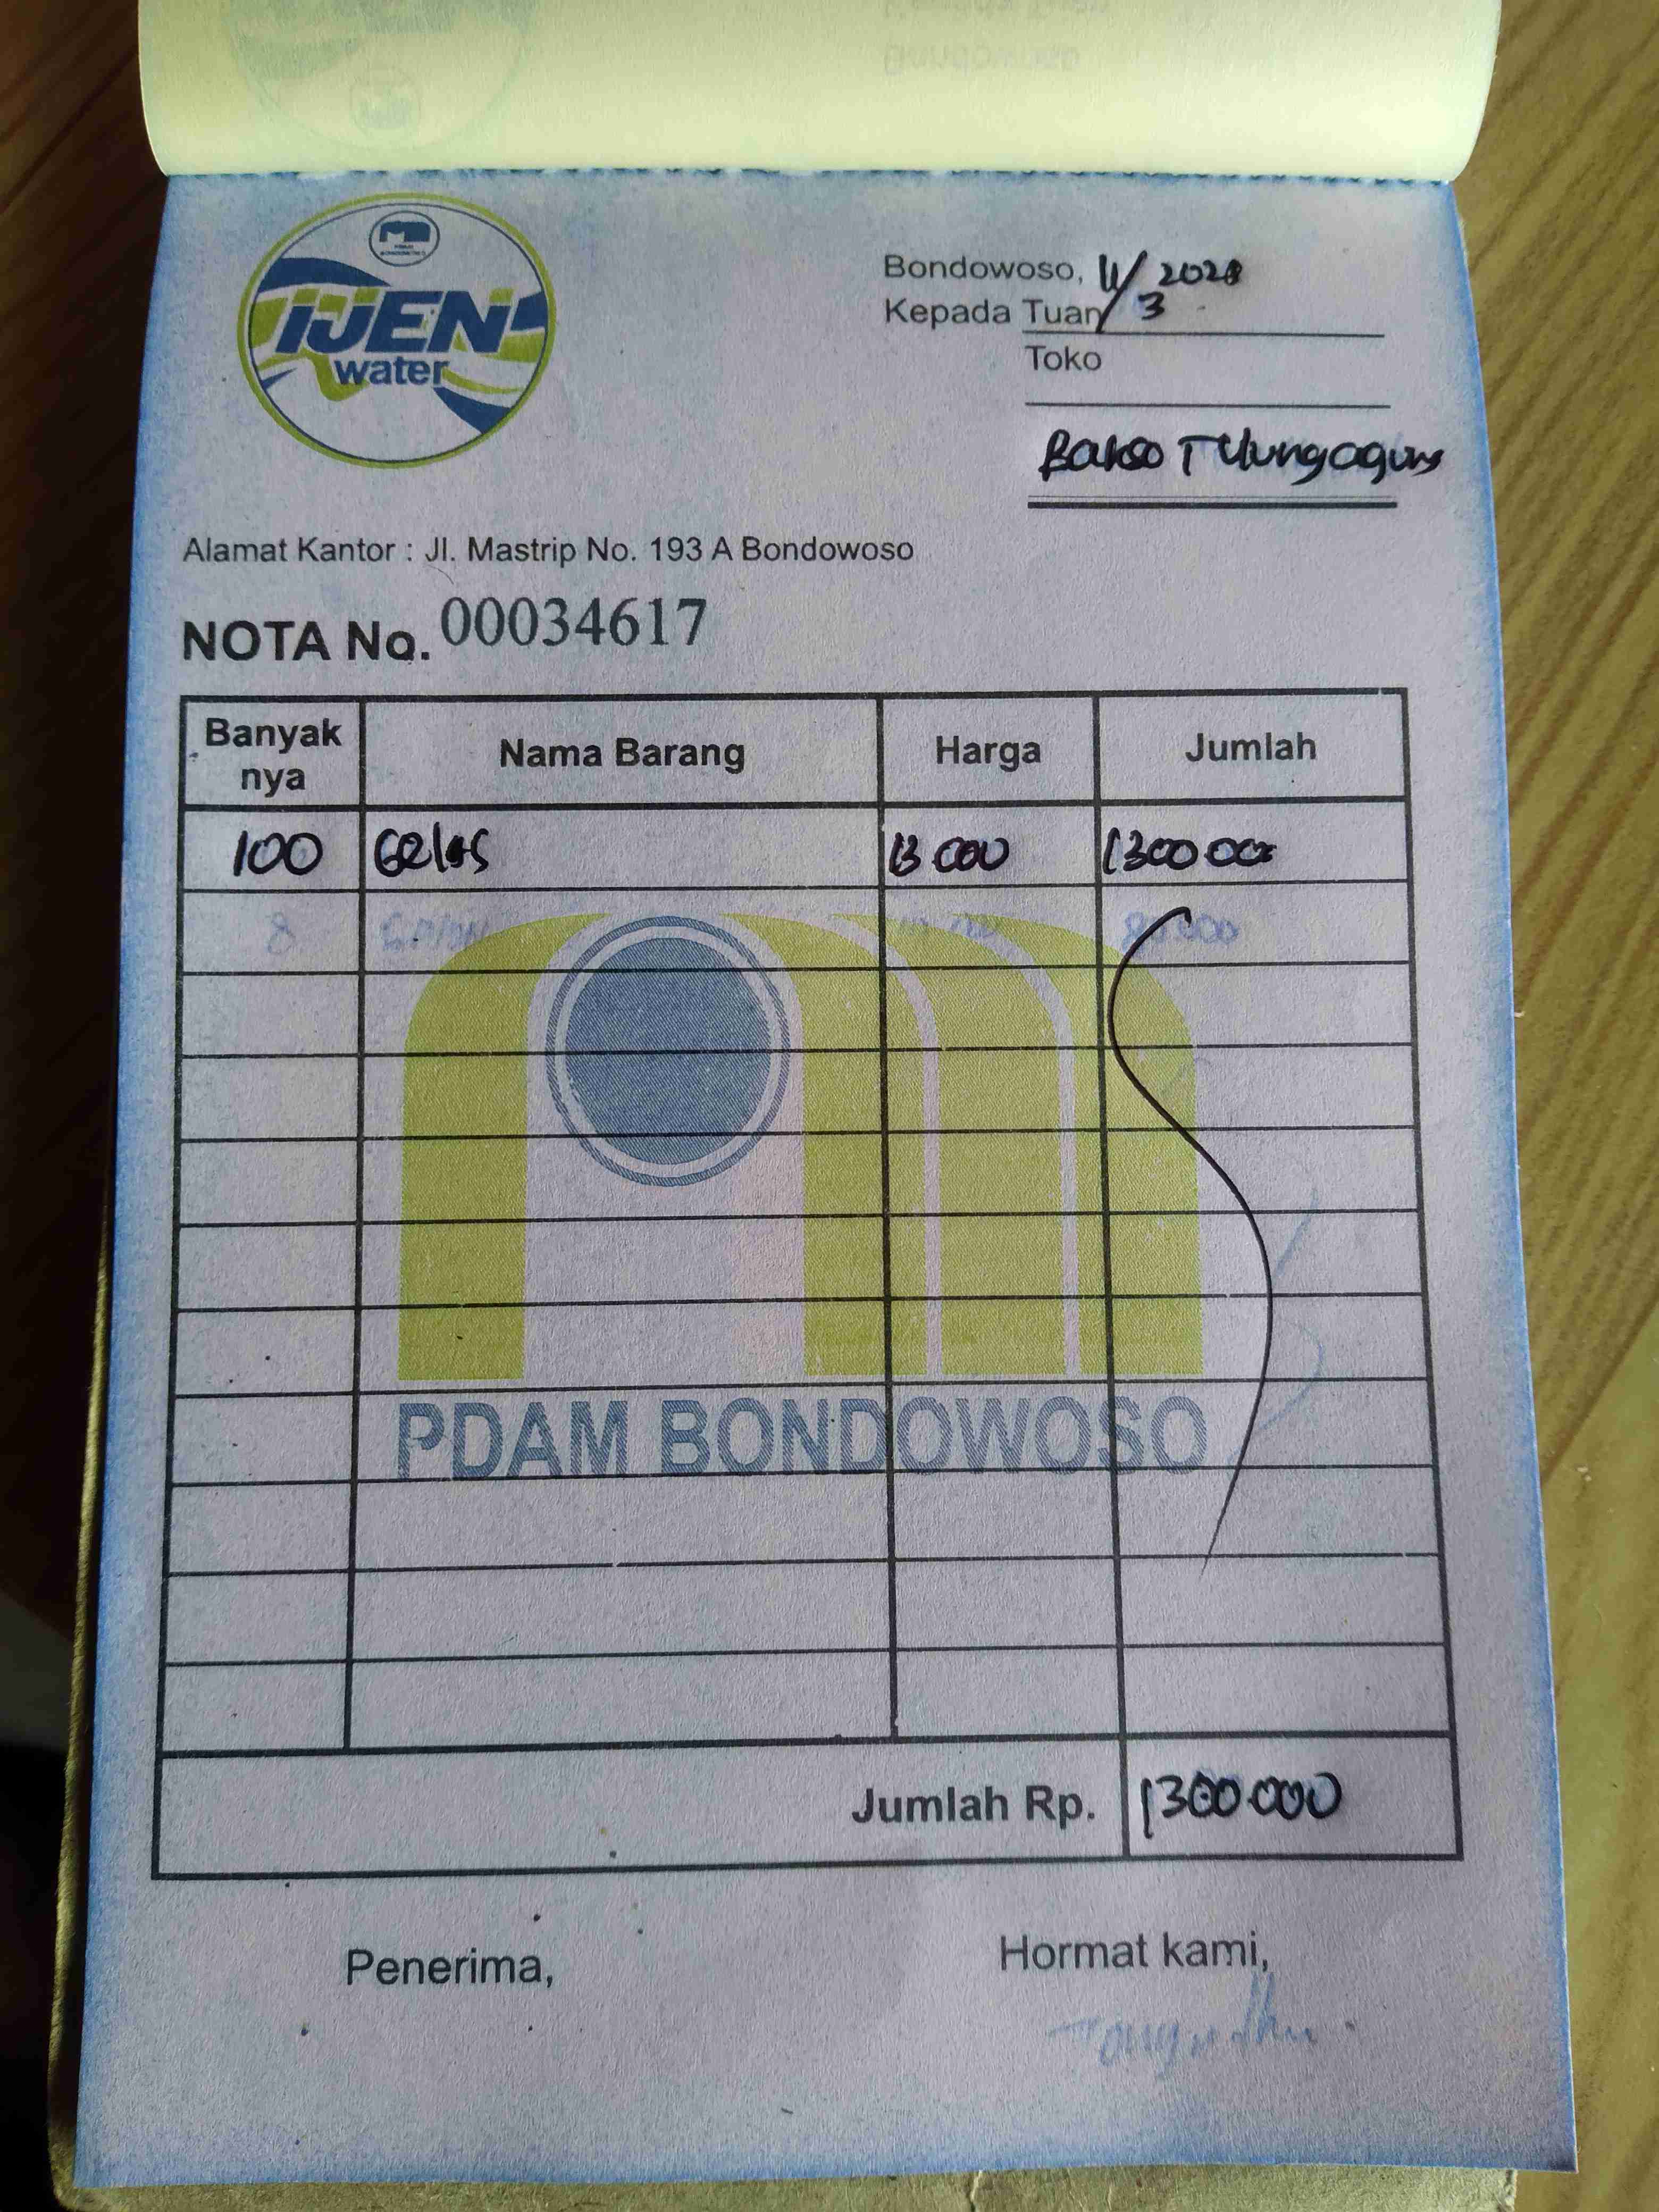 IJEN
water
PDAM
BONDOWOSO
Bondowoso, 11/3
Kepada Tuan
Toko
Bakso Tulungagung
Alamat Kantor : Jl. Mastrip No. 193 A Bondowoso
NOTA No. 00034617
Banyak nya Nama Barang Harga Jumlah
100 Gelas 13 000 1300 000
8 80.000
PDAM BONDOWOSO
Jumlah Rp. 1300.000
Penerima, Hormat kami,